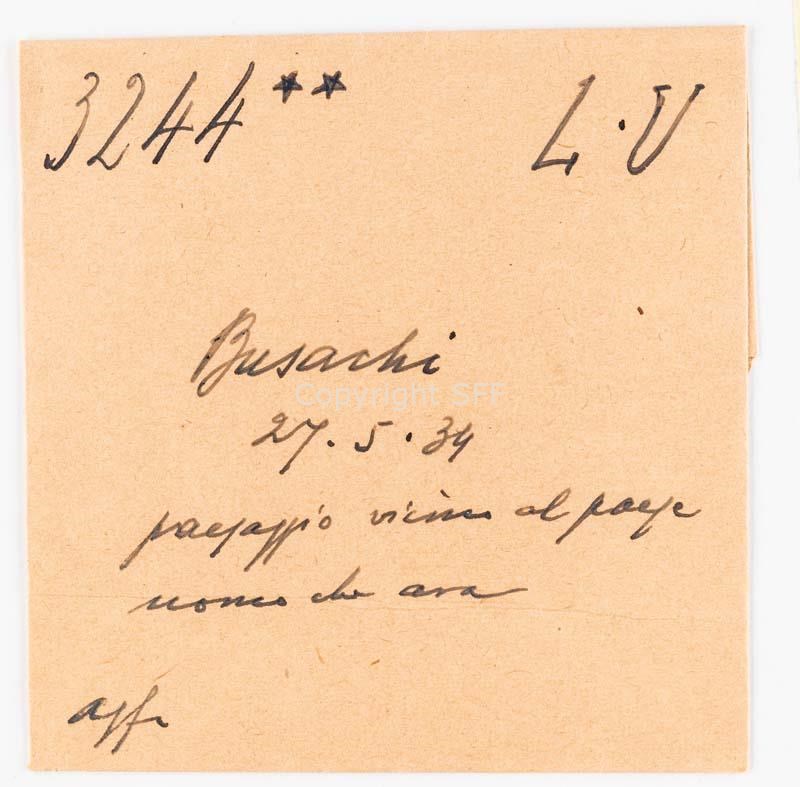 3244** L·U
Busachi
Copyright SFF
27.5.34
paesaggio vicino al paese
uomo che ara
agfa